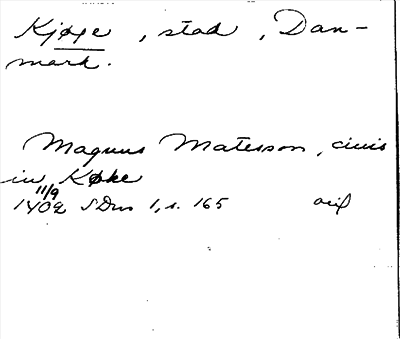 Kjøge, stad, Dan-
mark.
Magnus Matesson, civis
in Køke
11/9
1402 SDns 1, s. 165 orig